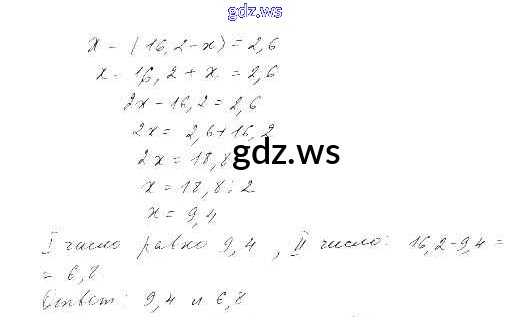 gdz.ws
x - (16,2-x) = 2,6
x - 16,2 + x = 2,6
2x - 16,2 = 2,6
2x = 2,6+16,2
2x = 18,8
gdz.ws
x = 18,8 : 2
x = 9,4
I число равно 9,4 , II число: 16,2-9,4 =
= 6,8
Ответ: 9,4 и 6,8